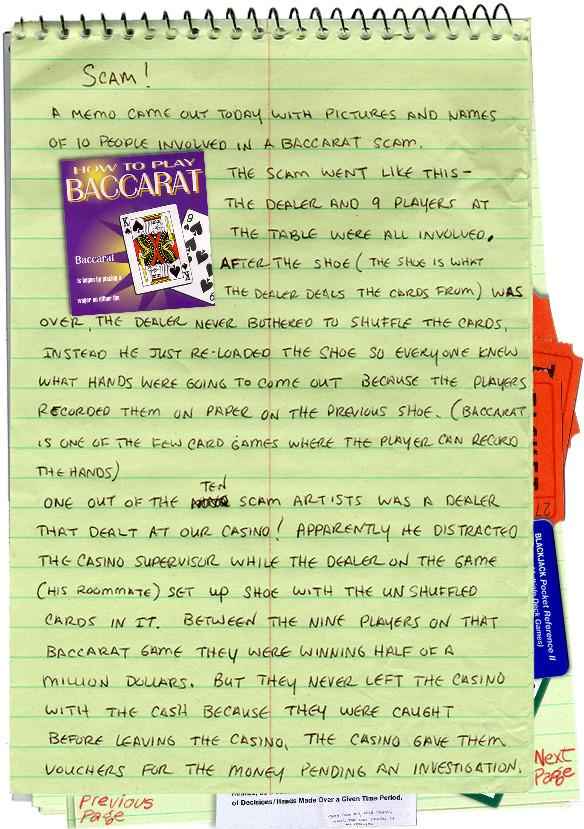 SCAM!
A MEMO CAME OUT TODAY WITH PICTURES AND NAMES
OF 10 PEOPLE INVOLVED IN A BACCARAT SCAM.
HOW TO PLAY
BACCARAT
K
9
Baccarat
is begun by placing a
wager on either the
THE SCAM WENT LIKE THIS-
THE DEALER AND 9 PLAYERS AT
THE TABLE WERE ALL INVOLVED.
AFTER THE SHOE (THE SHOE IS WHAT
THE DEALER DEALS THE CARDS FROM) WAS
OVER, THE DEALER NEVER BOTHERED TO SHUFFLE THE CARDS,
INSTEAD HE JUST RE-LOADED THE SHOE SO EVERYONE KNEW
WHAT HANDS WERE GOING TO COME OUT BECAUSE THE PLAYERS
RECORDED THEM ON PAPER ON THE PREVIOUS SHOE. (BACCARAT
IS ONE OF THE FEW CARD GAMES WHERE THE PLAYER CAN RECORD
THE HANDS)
TEN
ONE OUT OF THE SCAM ARTISTS WAS A DEALER
THAT DEALT AT OUR CASINO! APPARENTLY HE DISTRACTED
THE CASINO SUPERVISOR WHILE THE DEALER ON THE GAME
(HIS ROOMMATE) SET UP SHOE WITH THE UNSHUFFLED
CARDS IN IT. BETWEEN THE NINE PLAYERS ON THAT
BACCARAT GAME THEY WERE WINNING HALF OF A
MILLION DOLLARS. BUT THEY NEVER LEFT THE CASINO
WITH THE CASH BECAUSE THEY WERE CAUGHT
BEFORE LEAVING THE CASINO. THE CASINO GAVE THEM
VOUCHERS FOR THE MONEY PENDING AN INVESTIGATION.
27
BLACKJACK Pocket Reference II
Multiple Deck Games)
Next
Page
Previous
Page
of Decisions/Hands Made Over a Given Time Period.